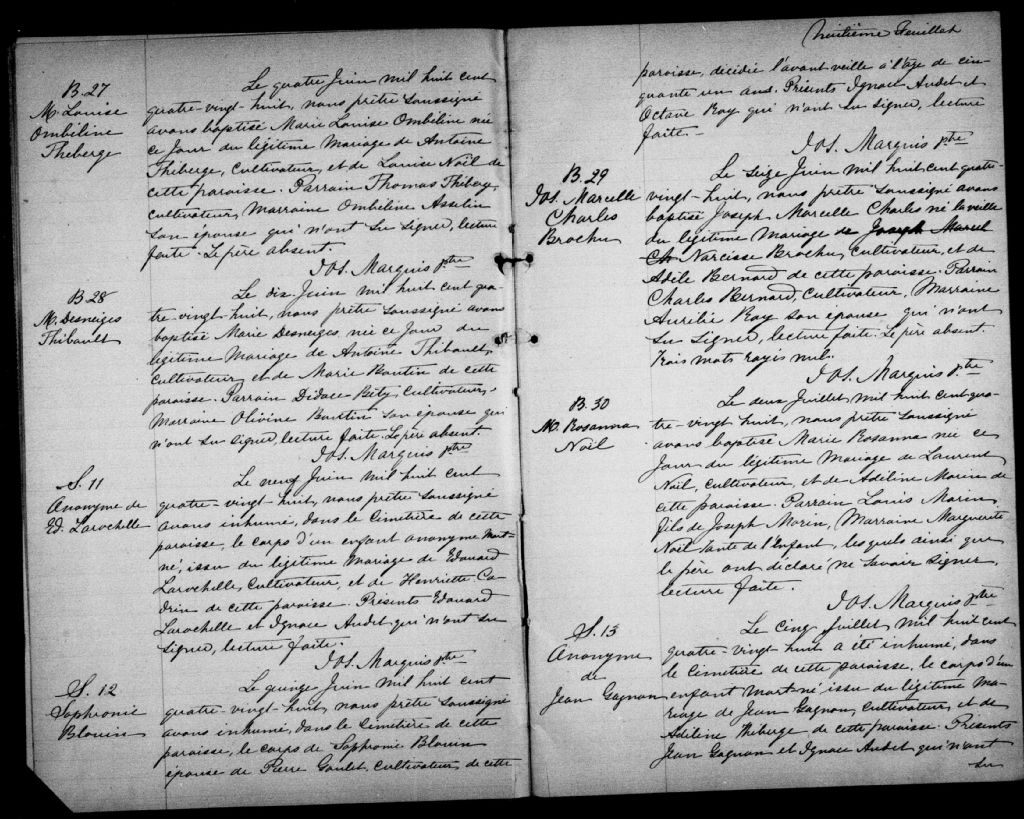 B. 27
M. Louise
Ombéline
Théberge
Le quatre Juin mil huit cent
quatre-vingt-huit, nous prêtre soussigné
avons baptisé Marie Louise Ombéline née
ce jour du légitime Mariage de Antoine
Théberge, Cultivateur, et de Louise Noël de
cette paroisse. Parrain Thomas Théberge
cultivateur, Marraine Ombéline Asselin
son épouse qui n'ont su signer, lecture
faite. Le père absent.
Jos. Marquis ptre
B. 28
M. Desneiges
Thibault
Le dix Juin mil huit cent qua-
tre-vingt-huit, nous prêtre soussigné avons
baptisé Marie Desneiges, née ce jour du
légitime Mariage de Antoine Thibault,
cultivateur, et de Marie Boutin de cette
paroisse. Parrain Didace Bety, Cultivateur,
Marraine Olivine Boutin son épouse qui
n'ont su signer, lecture faite. Le père absent.
Jos. Marquis ptre
S. 11
Anonyme de
Ed. Larochelle
Le neuf Juin mil huit cent
quatre-vingt-huit, nous prêtre soussigné
avons inhumé, dans le Cimetière de cette
paroisse, le corps d'un enfant anonyme Mort-
né, issu du légitime Mariage de Edouard
Larochelle, Cultivateur, et de Henriette Ca-
drin de cette paroisse. Présents Edouard
Larochelle et Ignace Audet qui n'ont su
signer, lecture faite.
Jos. Marquis ptre
S. 12
Sophronie
Blouin
Le quinze Juin mil huit cent
quatre-vingt-huit, nous prêtre soussigné
avons inhumé, dans le Cimetière de cette
paroisse, le corps de Sophronie Blouin
épouse de Pierre Goulet, Cultivateur, de cette
huitième Feuillet
paroisse, décédée l'avant veille à l'âge de cin-
quante un ans. Présents Ignace Audet et
Octave Roy qui n'ont su signer, lecture
faite.
Jos. Marquis ptre
B. 29
Jos. Marcelle
Charles
Brochu
Le seize Juin mil huit cent quatre-
vingt-huit, nous prêtre soussigné avons
baptisé Joseph, Marcelle Charles né la veille
du légitime Mariage de Joseph Marcel
Ch Narcisse Brochu, cultivateur, et de
Adèle Bernard de cette paroisse. Parrain
Charles Bernard, Cultivateur, Marraine
Aurélie Roy son épouse qui n'ont
su signer, lecture faite. Le père absent.
Trois mots rayés nul.
Jos. Marquis ptre
B. 30
M. Rosanna
Noël
Le deux Juillet mil huit cent qua-
tre-vingt huit, nous prêtre soussigné
avons baptisé Marie Rosanna née ce
jour du légitime Mariage de Laurent
Noël, cultivateur, et de Adéline Morin de
cette paroisse. Parrain Louis Morin,
fils de Joseph Morin, Marraine Marguerite
Noël tante de l'Enfant, lesquels ainsi que
le père ont déclaré ne savoir signer,
lecture faite.
Jos. Marquis ptre
S. 13
Anonyme
de
Jean Gagnon
Le Cinq Juillet mil huit cent
quatre-vingt huit a été inhumé, dans
le Cimetière de cette paroisse, le corps d'un
enfant Mort-né, issu du légitime Ma-
riage de Jean Gagnon, Cultivateur, et de
Adéline Théberge de cette paroisse. Présents
Jean Gagnon et Ignace Audet qui n'ont
su